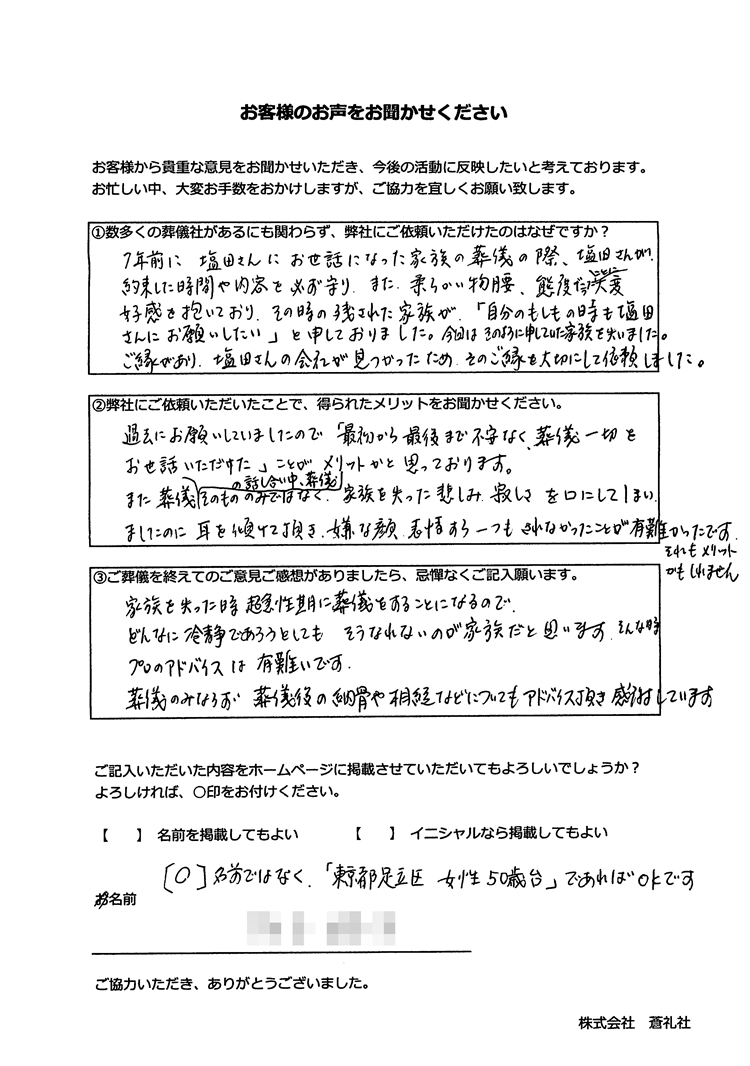 お客様のお声をお聞かせください
お客様から貴重な意見をお聞かせいただき、今後の活動に反映したいと考えております。
お忙しい中、大変お手数をおかけしますが、ご協力を宜しくお願い致します。
①数多くの葬儀社があるにも関わらず、弊社にご依頼いただけたのはなぜですか？
7年前に塩田さんにお世話になった家族の葬儀の際、塩田さんが、
約束した時間や内容を必ず守り、また、柔らかい物腰、態度がとても大変
好感を抱いており、その時の残された家族が、「自分のもしもの時も塩田
さんにお願いしたい」と申しておりました。今回はそのように申していた家族を失いました。
ご縁があり、塩田さんの会社が見つかったため、そのご縁を大切にして依頼しました。
②弊社にご依頼いただいたことで、得られたメリットをお聞かせください。
過去にお願いしていましたので「最初から最後まで不安なく、葬儀一切を
お世話いただけた」ことがメリットかと思っております。
の話し合い中、葬儀
また葬儀そのもののみではなく、家族を失った悲しみ、寂しさを口にしてしまい
ましたのに耳を傾けて頂き、嫌な顔、表情すら一つもされなかったことが有難かったです。
それもメリット
かもしれません
③ご葬儀を終えてのご意見ご感想がありましたら、忌憚なくご記入願います。
家族を失った時、超急性期に葬儀をすることになるので、
どんなに冷静であろうとしてもそうなれないのが家族だと思います。そんな時
プロのアドバイスは有難いです。
葬儀のみならず葬儀後の納骨や相続などについてもアドバイス頂き感謝しています
ご記入いただいた内容をホームページに掲載させていただいてもよろしいでしょうか？
よろしければ、〇印をお付けください。
【　】 名前を掲載してもよい　　【　】 イニシャルなら掲載してもよい
[〇] 名前ではなく、「東京都足立区 女性50歳台」であればOKです
お名前
ご協力いただき、ありがとうございました。
株式会社　蒼礼社